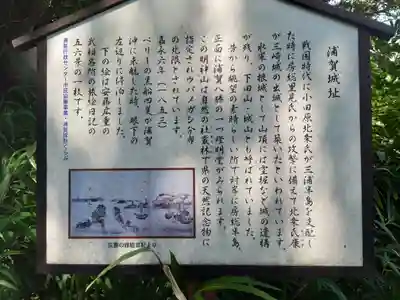 浦賀城址
戦国時代に小田原北条氏が三浦半島を支配し
た時に房総里見氏からの攻撃に備えて北条氏康
が三崎城の出城として築いたといわれています。
水軍の根城として山頂には空堀など城の遺構
が残り、下田山・城山とも呼ばれていました。
昔から眺望の素晴らしい所で対岸に房総半島、
正面に浦賀八勝の一つ燈明堂がみられます。
この明神山は自然の社叢林で県の天然記念物に
指定されウバメガシ分布
の北限とされています。
嘉永六年(一八五三)
ペリーの黒船四隻が浦賀
沖に来航した時、眼下の
左辺りに停泊しました。
下の絵は安藤広重の
武相名所の旅絵日記の
五六番の一枚です。